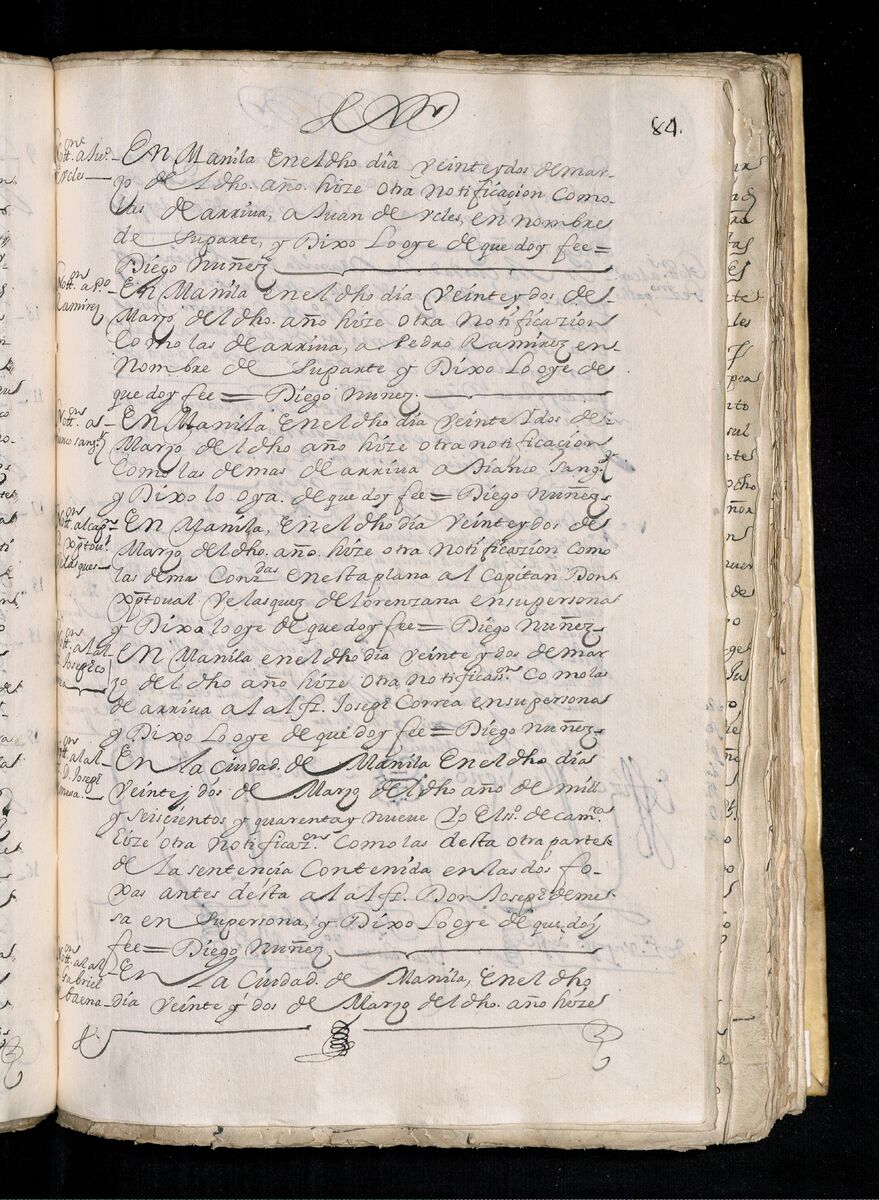 84.
Nott.on a Ju.o
Vcles
En Manila En el dho dia veinteydos de mar-
zo de l dho. año. hize otra notificacion Como
las de arriua, a Juan de Vcles, en nombre
de Suparte, y Dixo Lo oye de que doy fee =
Diego Nuñez
Nott.on a P.o
Ramirez
En Manila en el dho dia Veinteydos de
Marzo del dho. año hize otra Notificazion
Como las de arriua, a Pedro Ramirez en
Nombre de Suparte y Dixo Lo oye de
que doy fee = Diego Nunez.
Nott.on a s
sang
En Manila en el dho dia Veinte Idos de
Marzo de l dho año hize otra notificacion
Como las demas de arriua a Sianco Sang
y Dixo lo oya. de que doy fee = Diego Nuñez
Nott.on al cap.n
D. xptou.l
Velasques
En Manila, En el dho dia Veinteydos de
Marzo del dho. año: hize otra Notificazion Como
las demas Conzdas En esta plana a l Capitan Don
xptoual Velasquez de Lorenzana en su persona
y Dixa lo oye de que doy fee = Diego Nuñez
Nott.on a l al
Joseph Co
rrea
En Manila en el dho dia Veinte y dos de mar
zo del dho año hize otra notificas.on Como las
de arriua a l alfz. Joseph Correa en su persona
y Dixo Lo oye de que doy fee = Diego Nuñez
Nott.on a l al
D. Joseph
mesa
En la Ciudad. de Manila En el dho dias
Veintej dos de Marzo del dho año de mill
y seiscientos y quarentay nueve Yo El ss.o de cam.ra
Hize otra Notificaz.on Como las desta otra parte
de la sentencia Contenida en las dos fo-
xas antes desta a l alfz. Don Joseph de me
sa en Supersona, y Dixo Lo oye de que doy
fee = Diego Nuñez
Nott.on a l al
Gabriel
baena
En La Ciudad. de Manila, En el dho
dia Veinte y dos de Marzo del dho. año hize